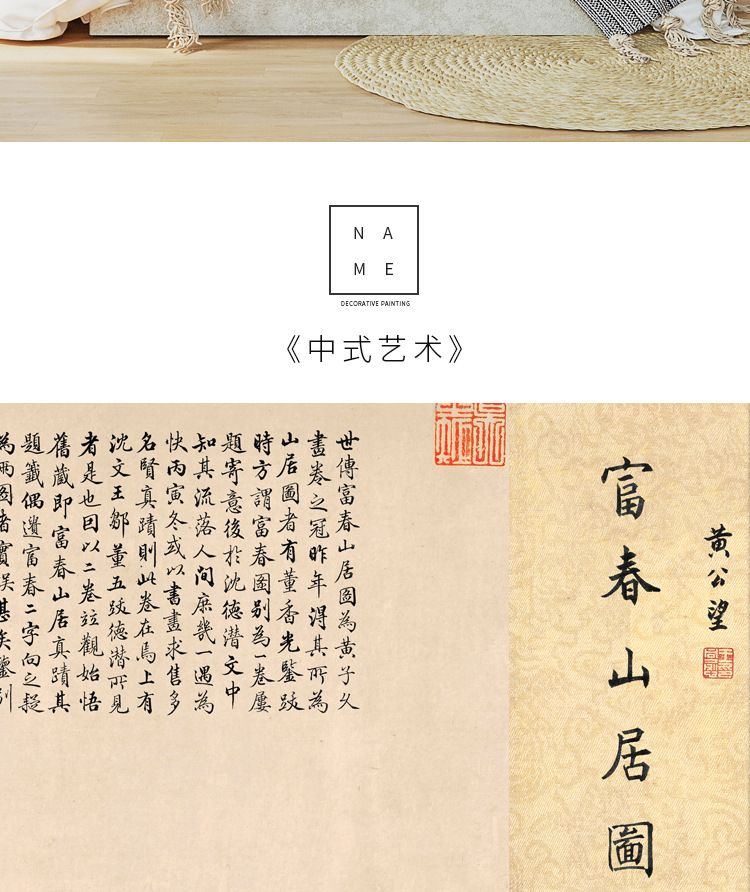 NA
ME
DECORATIVE PAINTING
《中式艺术》
黄公望
富春山居圖
世傳富春山居圖為黃子久
畫卷之冠昨年得其所為
山居圖者有董香光鑒跋
時方謂富春圖别為一卷屢
題寄意後於沈德潛文中
知其流落人間庶幾一遇為
快丙寅冬或以書畫求售多
名賢真蹟則此卷在焉上有
沈文王鄒董五跋德潛所見
者是也因以二卷竝觀始悟
舊藏即富春山居真蹟其
題籤偶遺富春二字向之疑
為兩圖者實誤甚矣鑒别